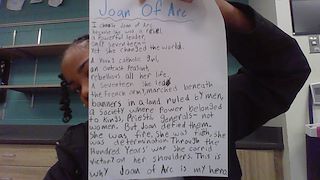 Joan Of Arc
I choose Joan of Arc
because she was a rebel,
a powerful leader,
only seventeen
Yet she changed the world.
A Young catholic girl,
an outcast Peasant
rebellious all her life
A Seventeen She led
the French army, marched beneath
banners in a land ruled by men,
a society where Power belonged
to Kings, Priests generals- not
women. But Joan defied them.
She was fire, She was faith, she
was determination Through the
Hundred Years' War She
victory on her shoulders. This is
why Joan of Arc is my hero